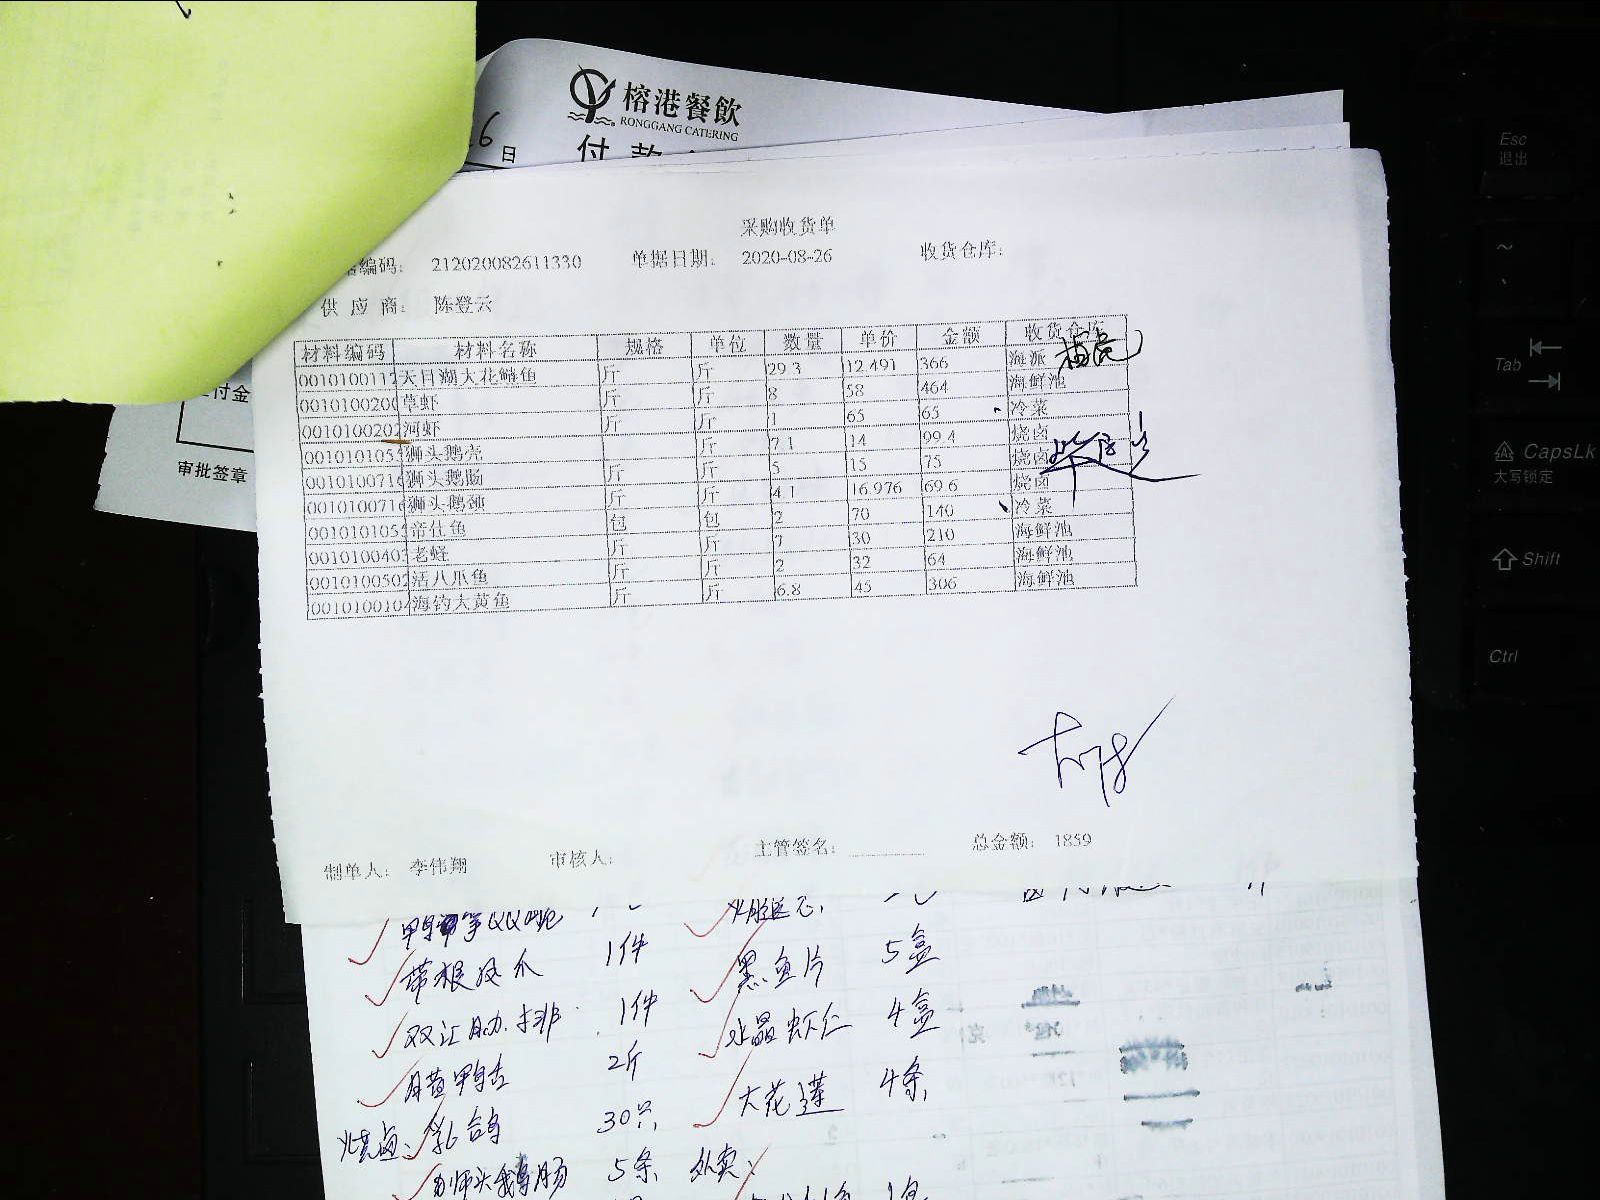 榕港餐飲
RONGGANG CATERING
6日
付款
采购收货单
编码: 212020082611330 单据日期: 2020-08-26 收货仓库:
供应商: 陈登云
材料编码 材料名称 规格 单位 数量 单价 金额 收货仓库
001010011 天目湖大花鲢鱼 斤 斤 29.3 12.491 366 海派
001010020 草虾 斤 斤 8 58 464 海鲜池
0010100202 河虾 斤 斤 1 65 65 冷菜
001010105 狮头鹅壳 斤 7.1 14 99.4 烧卤
001010071 狮头鹅肠 斤 斤 5 15 75 烧卤
001010071 狮头鹅颈 斤 斤 4.1 16.976 69.6 烧卤
001010105 帝仕鱼 包 包 2 70 140 冷菜
001010040 老蛏 斤 斤 7 30 210 海鲜池
001010050 活八爪鱼 斤 斤 2 32 64 海鲜池
001010010 海钓大黄鱼 斤 斤 6.8 45 306 海鲜池
付金
审批签章
制单人: 李伟翔 审核人: 主管签名: 总金额: 1859
带根凤爪 1件 黑鱼片 5盒
双汇肋排 1件 水晶虾仁 4盒
2斤 大花莲 4条
烧卤: 乳鸽 30只
狮头鹅肠 5条 外卖:
Esc
退出
~
Tab
CapsLk
大写锁定
Shift
Ctrl